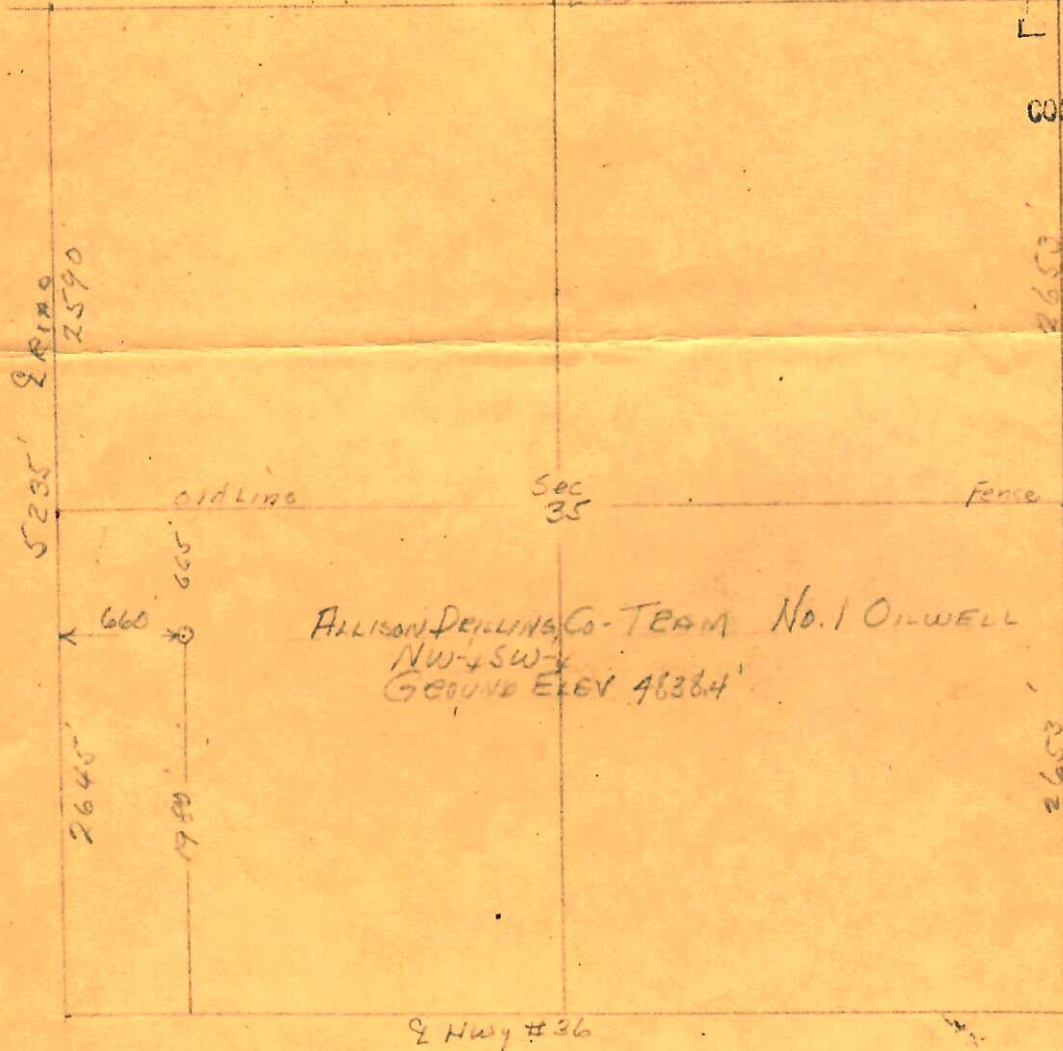 CO
2653'
℄ RIAO
2590
5235'
Old Line
Sec
35
Fence
665'
660'
ALLISON DRILLING CO - TEAM No. 1 OILWELL
NW-¼ SW-¼
GROUND ELEV 4838.4'
2645'
1980'
2653'
℄ HWY #36